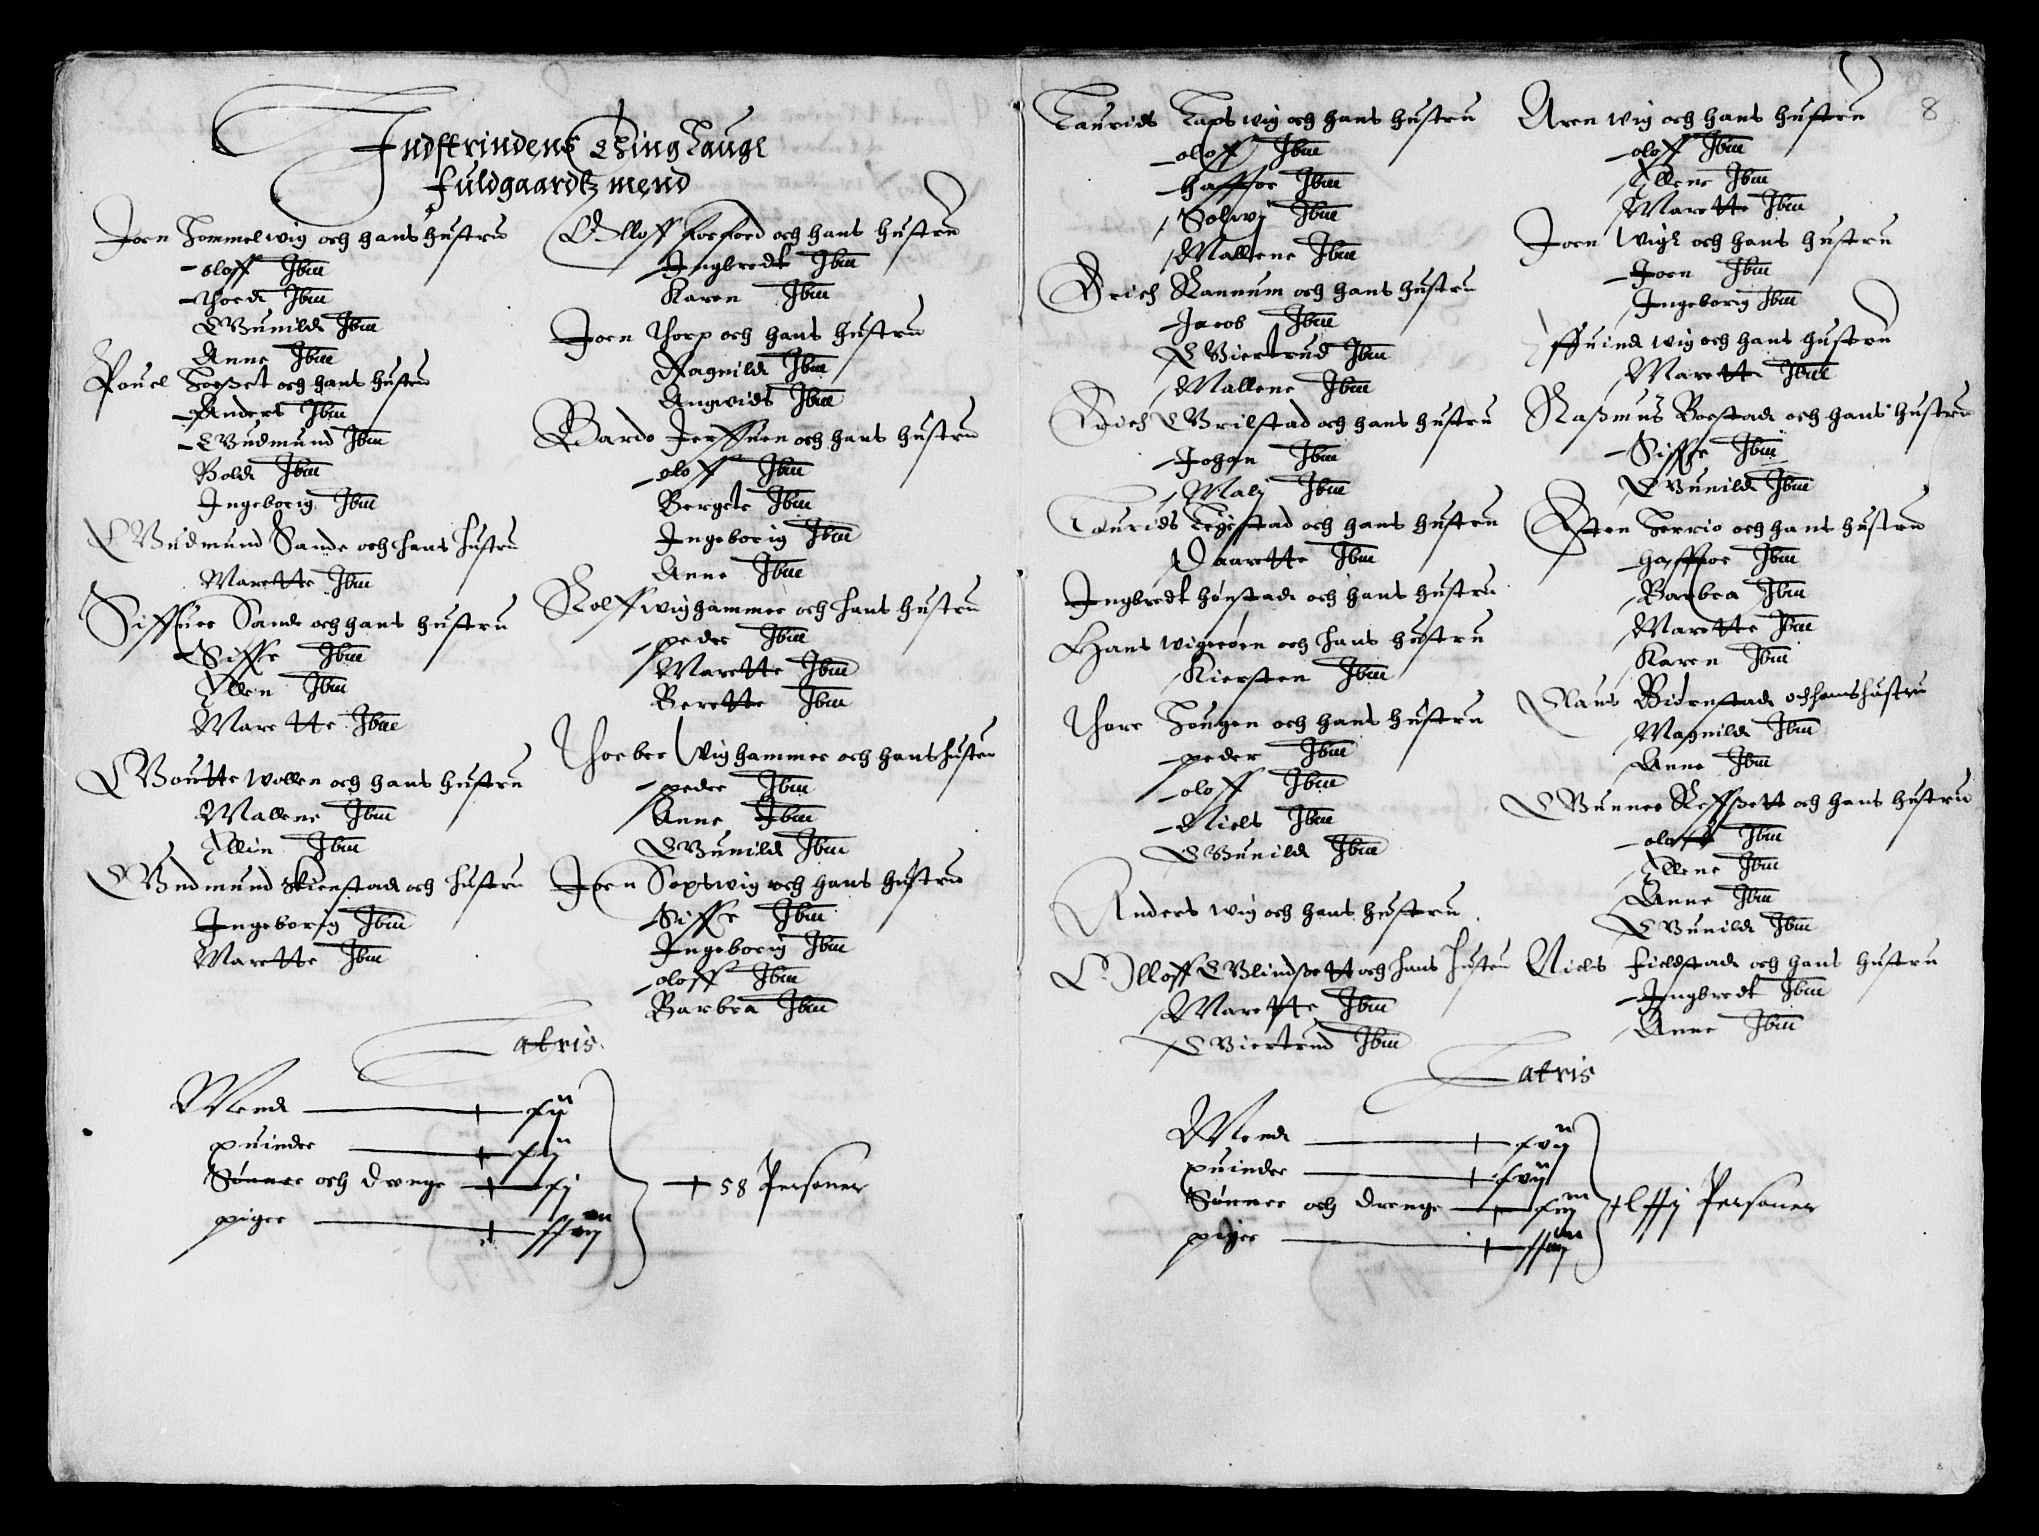 Indftrindens Thinglaugh
fuldgaardtz mend
Joen Hommelwig och hans hustru
oloff Jbm
Thord Jbm
Gunild Jbm
Anne Jbm
Pouel och hans hustru
Anders Jbm
Gudmund Jbm
Bold Jbm
Ingeborig Jbm
Gudmund Sande och hans hustru
Marette Jbm
Siffuer Sande och hans hustru
Siffe Jbm
Ellen Jbm
Marette Jbm
Goutte Wollen och hans hustru
Mallene Jbm
Ellin Jbm
Gudmund Skienstad och hustru
Ingeborig Jbm
Marette Jbm
Olloff och hans hustru
Ingbredt Jbm
Karen Jbm
Joen Thorp och hans hustru
Ragnild Jbm
Jbm
Bardo Jerffuen och hans hustru
oloff Jbm
Bergete Jbm
Ingeborig Jbm
Anne Jbm
Rolff wighammer och hans hustru
peder Jbm
Marette Jbm
Berette Jbm
Thorber wighammer och hans hustru
peder Jbm
Anne Jbm
Gunild Jbm
Joen Sopswig och hans hustru
Siffe Jbm
Ingeborig Jbm
oloff Jbm
Barbra Jbm
Latris
Mend xij
puinder xij
Sønner och drenge xj
piger xxiij
58 Personer
8
Laurids Tapswig och hans hustru
oloff Jbm
haffor Jbm
Solwj Jbm
Mallene Jbm
Erich Nannum och hans hustru
Jacob Jbm
Giertrud Jbm
Mallene Jbm
Erich Grilstad och hans hustru
Johan Jbm
Malj Jbm
Laurids och hans hustru
Daarette Jbm
Ingbredt hønstad och hans hustru
Hans och hans hustru
Kiersten Jbm
Thore Hougen och hans hustru
peder Jbm
oloff Jbm
Niels Jbm
Gunild Jbm
Anders wig och hans hustru
Olloff och hans hustru
Marette Jbm
Giertrud Jbm
Aren wig och hans hustru
oloff Jbm
Ellene Jbm
Marette Jbm
Joen wigh och hans hustru
Joen Jbm
Ingeborig Jbm
Effuind wig och hans hustru
Marette Jbm
Rasmus Borstad och hans hustru
Siffe Jbm
Gunild Jbm
Sten och hans hustru
haffor Jbm
Barbra Jbm
Marette Jbm
Karen Jbm
Claus Biørnstad och hans hustru
Magnild Jbm
Anne Jbm
Gunner Reffßett och hans hustru
oloff Jbm
Ellene Jbm
Anne Jbm
Gunild Jbm
Niels fieldstad och hans hustru
Ingbredt Jbm
Anne Jbm
Latris
Mend xvij
puinder xvij
Sønner och drenge
piger
Personer